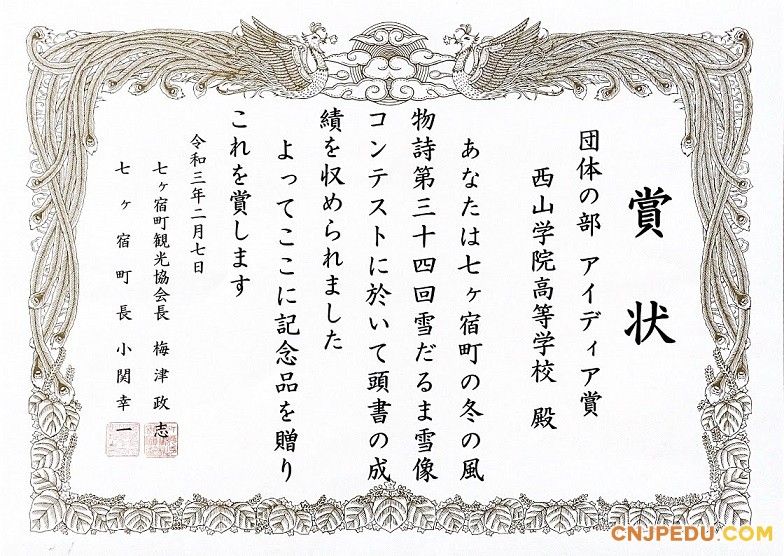 賞状
団体の部 アイディア賞
西山学院高等学校 殿
あなたは七ヶ宿町の冬の風
物詩第三十四回雪だるま雪像
コンテストに於いて頭書の成
績を収められました
よってここに記念品を贈り
これを賞します
令和三年二月七日
七ヶ宿町観光協会長 梅津政志
七ヶ宿町長 小関幸一
CNJPEDU.COM